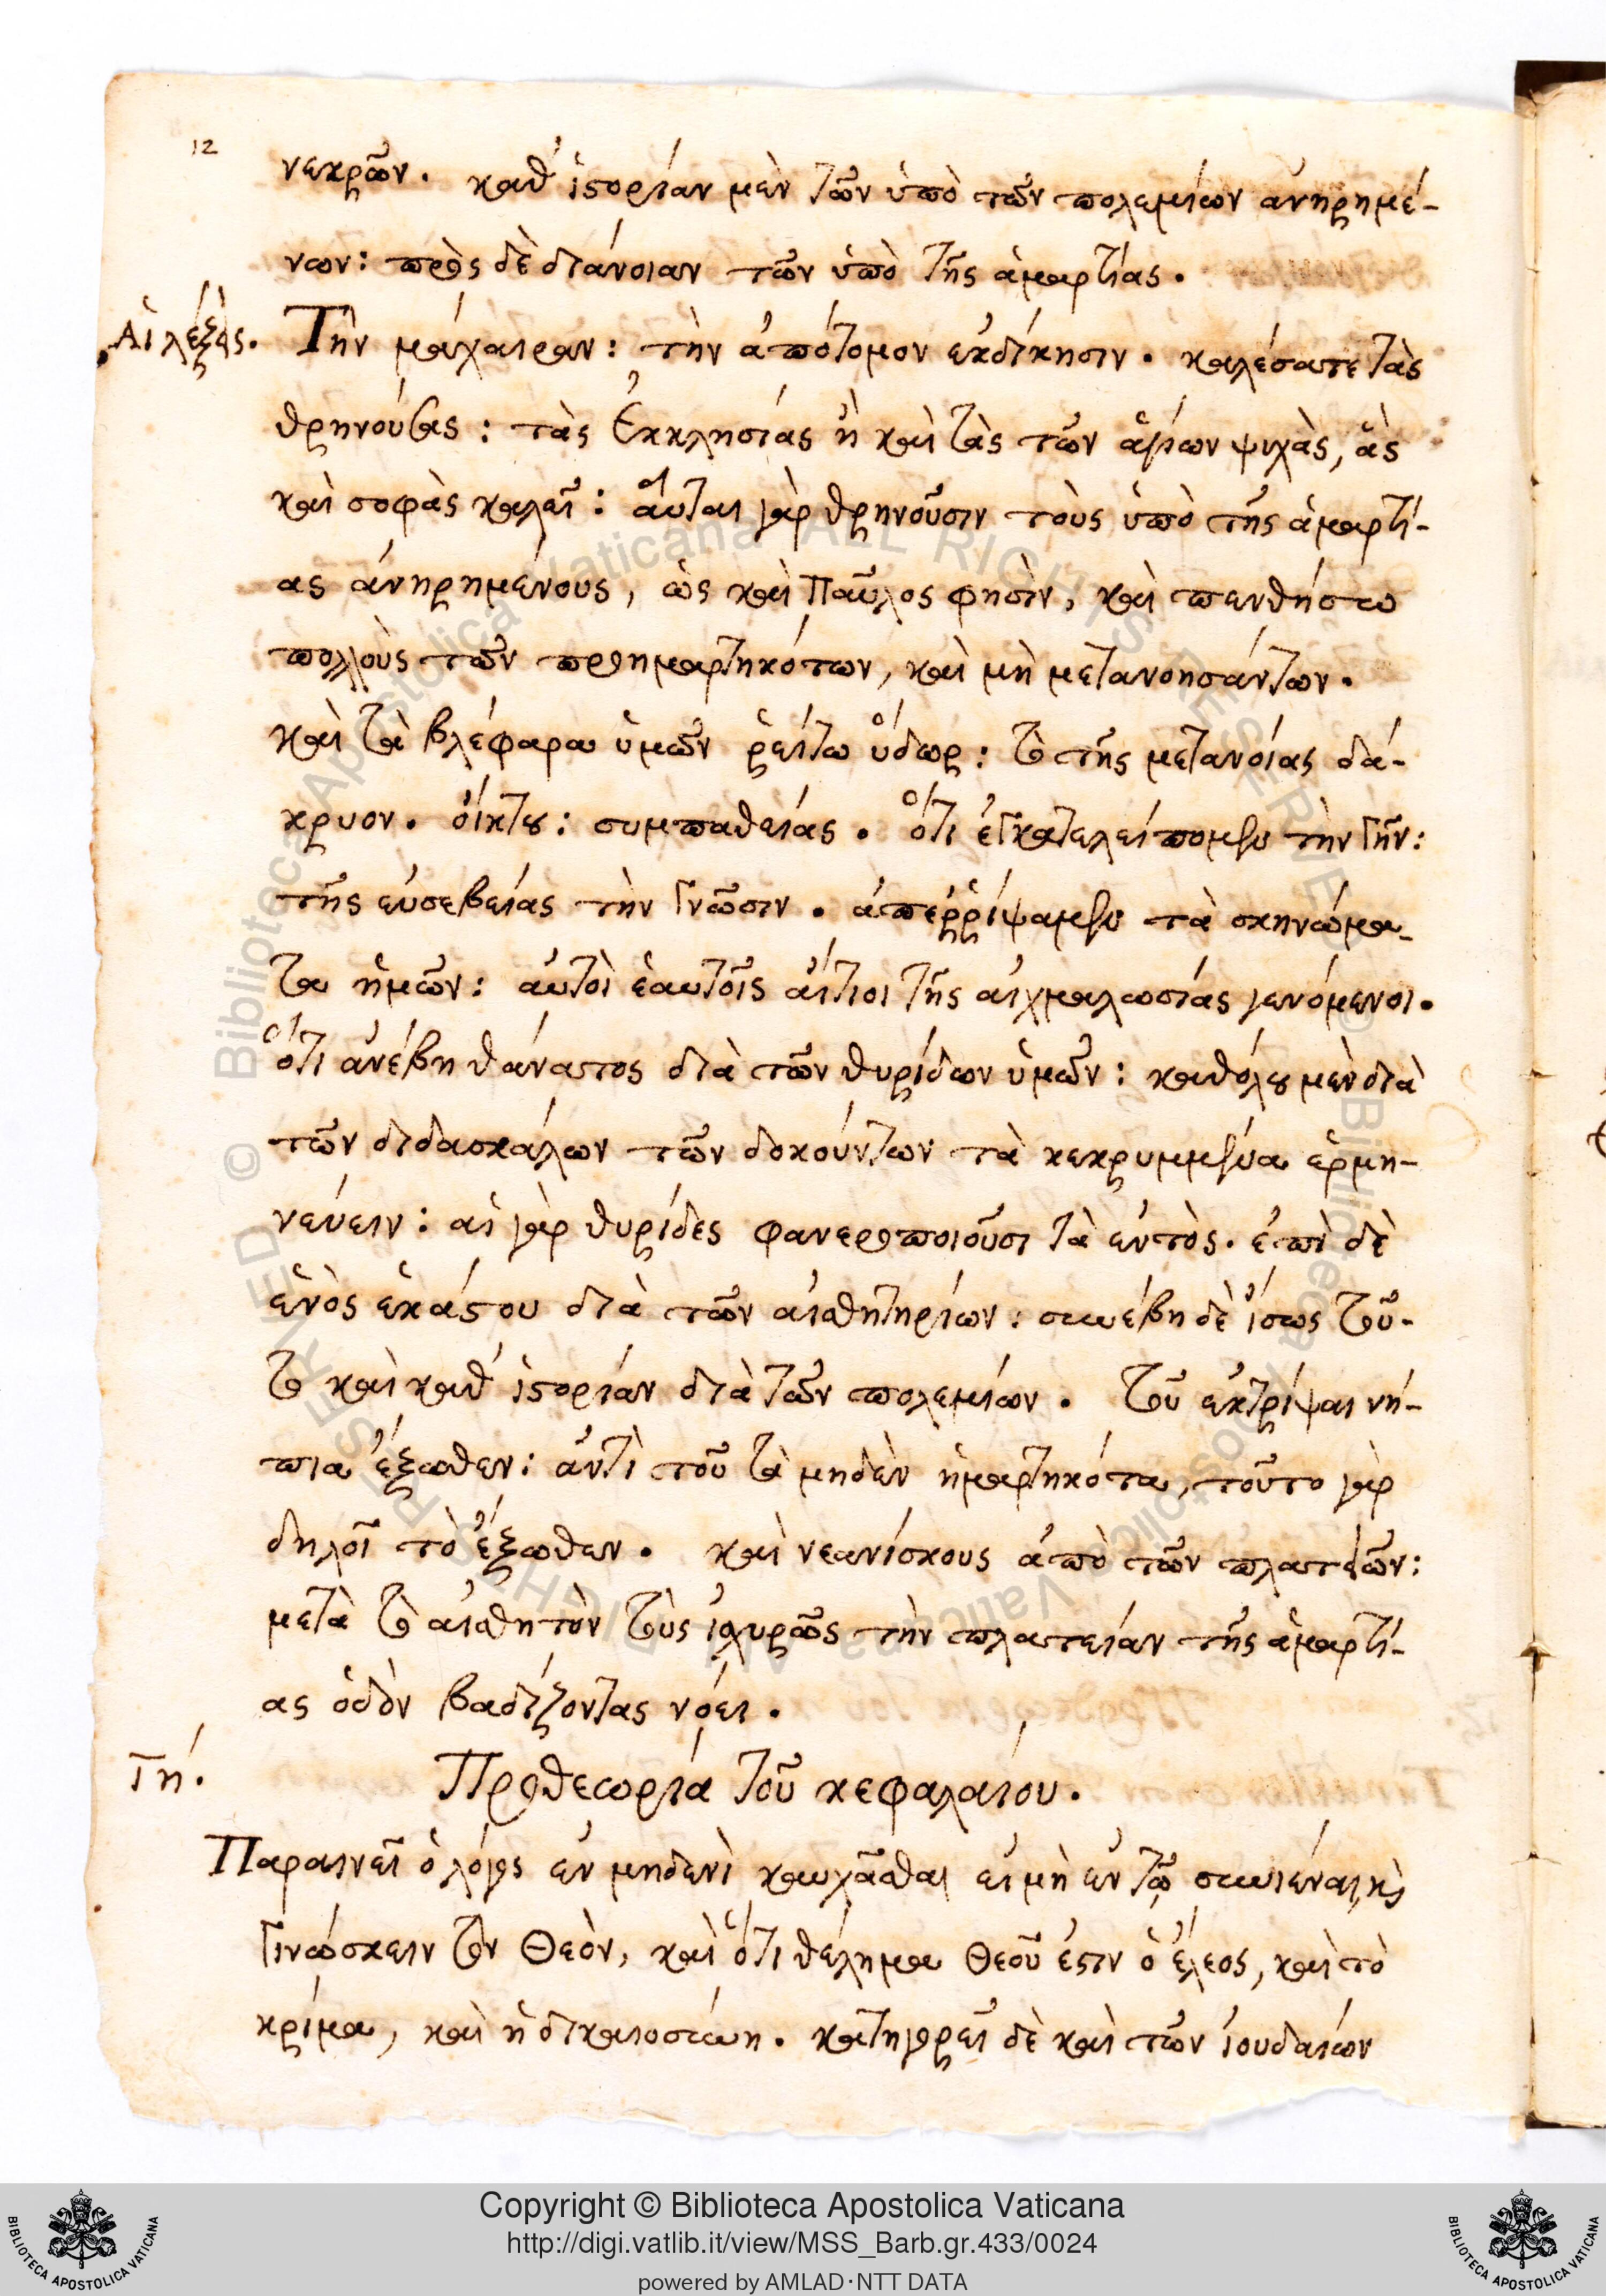 12
νεκρῶν. καθ' ἱστορίαν μὲν τῶν ὑπὸ τῶν πολεμίων ἀνῃρημέ-
νων: πρὸς δὲ διάνοιαν τῶν ὑπὸ τῆς ἁμαρτίας.
Αἱ λέξεις. Τὴν μάχαιραν: τὴν ἀπότομον ἐκδίκησιν. καλέσατε τὰς
θρηνούσας: τὰς Ἐκκλησίας ἢ καὶ τὰς τῶν ἁγίων ψυχὰς, ἃς
καὶ σοφὰς καλεῖ: αὗται γὰρ θρηνοῦσιν τοὺς ὑπὸ τῆς ἁμαρτί-
ας ἀνῃρημένους, ὡς καὶ Παῦλος φησὶν, καὶ πενθήσω
πολλοὺς τῶν προημαρτηκότων, καὶ μὴ μετανοησάντων.
καὶ τὰ βλέφαρα ὑμῶν ῥείτω ὕδωρ: τὸ τῆς μετανοίας δά-
κρυον. οἴκτου: συμπαθείας. ὅτι ἐγκατελείπομεν τὴν γῆν:
τῆς εὐσεβείας τὴν γνῶσιν. ἀπερρίψαμεν τὰ σκηνώμα-
τα ἡμῶν: αὐτοὶ ἑαυτοῖς αἴτιοι τῆς αἰχμαλωσίας γενόμενοι.
ὅτι ἀνέβη θάνατος διὰ τῶν θυρίδων ὑμῶν: καθόλου μὲν διὰ
τῶν διδασκάλων τῶν δοκούντων τὰ κεκρυμμένα ἑρμη-
νεύειν: αἱ γὰρ θυρίδες φανεροποιοῦσι τὰ ἐντὸς. ἐπὶ δὲ
ἑνὸς ἑκάστου διὰ τῶν αἰσθητηρίων: συνέβη δὲ ἴσως τοῦ-
το καὶ καθ' ἱστορίαν διὰ τῶν πολεμίων. τοῦ ἐκτρίψαι νή-
πια ἔξωθεν: ἀντὶ τοῦ τὰ μηδὲν ἡμαρτηκότα, τοῦτο γὰρ
δηλοῖ τὸ ἔξωθεν. καὶ νεανίσκους ἀπὸ τῶν πλατειῶν:
μετὰ τὸ αἰσθητὸν τοὺς ἰσχυρῶς τὴν πλατείαν τῆς ἁμαρτί-
ας ὁδὸν βαδίζοντας νόει.
Γη. Προθεωρία τοῦ κεφαλαίου.
Παραινεῖ ὁ λόγος ἐν μηδενὶ καυχᾶσθαι εἰ μὴ ἐν τῷ συνιέναι, καὶ
γινώσκειν τὸν Θεὸν, καὶ ὅτι θέλημα Θεοῦ ἐστιν ὁ ἔλεος, καὶ τὸ
κρίμα, καὶ ἡ δικαιοσύνη. κατηγορεῖ δὲ καὶ τῶν ἰουδαίων
Copyright © Biblioteca Apostolica Vaticana
http://digi.vatlib.it/view/MSS_Barb.gr.433/0024
powered by AMLAD·NTT DATA